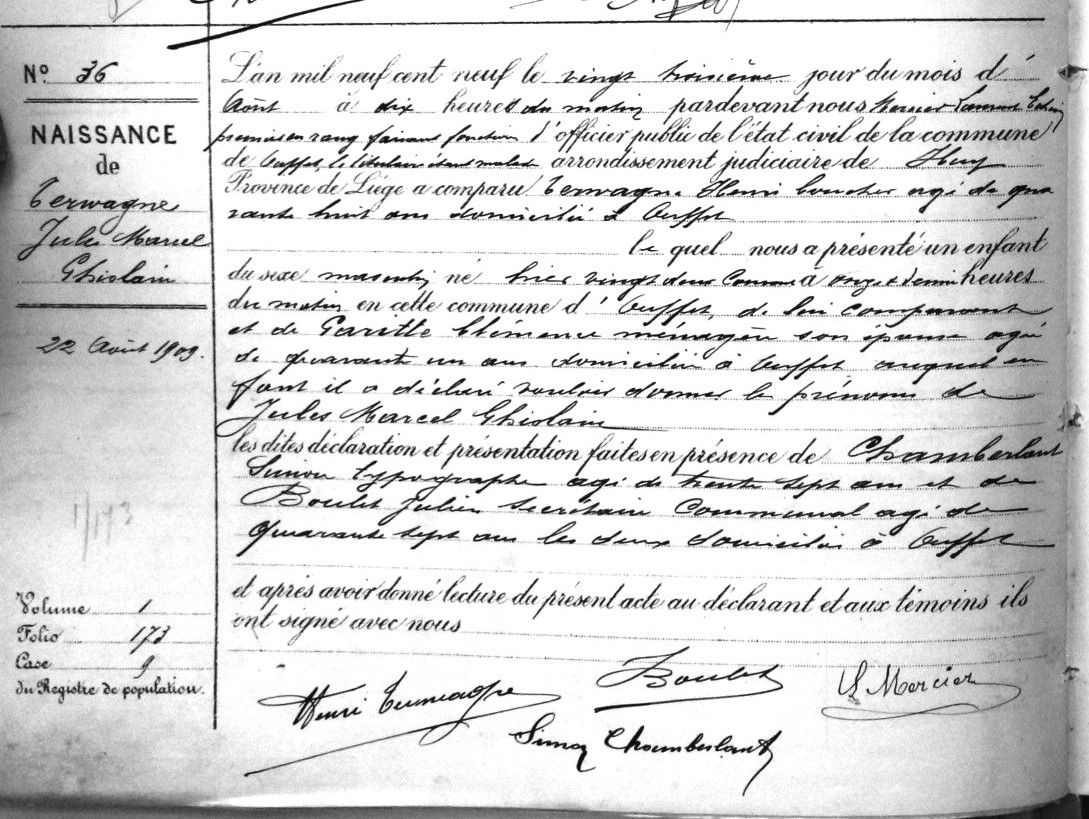 N° 36
NAISSANCE
de
Terwagne
Jules Marcel
Ghislain
22 Août 1909.
1/173
Volume 1
Folio 173
Case 9
du Registre de population.
L'an mil neuf cent neuf le vingt troisième jour du mois d'
Août à dix heures du matin pardevant nous Mercier Laurent Echevin
premier en rang faisant fonction d'officier public de l'état civil de la commune
de Ouffet, le titulaire étant malade arrondissement judiciaire de Huy
Province de Liége a comparu Terwagne Henri boucher agé de qua
rante huit ans domicilié à Ouffet
le quel nous a présenté un enfant
du sexe masculin né hier vingt deux courant à onze & demi heures
du matin en cette commune d'Ouffet, de lui comparant
et de Paritte Clémence ménagère son épouse agée
de quarante un ans domiciliée à Ouffet auquel en
fant il a déclaré vouloir donner le prénoms de
Jules Marcel Ghislain
les dites déclaration et présentation faites en présence de Chamberlant
Simon typographe agé de trente sept ans et de
Boulet Julien secrétaire communal agé de
quarante sept ans les deux domiciliés à Ouffet
et après avoir donné lecture du présent acte au déclarant et aux témoins ils
ont signé avec nous
Henri Terwagne
Boulet
L Mercier
Simon Chamberlant